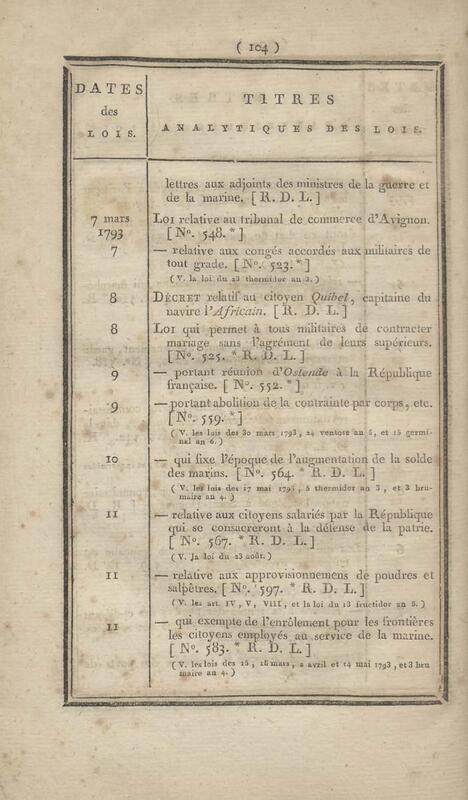 ( 104 )
DATES
des
LOIS.
TITRES
ANALYTIQUES DES LOIS.
lettres aux adjoints des ministres de la guerre et
de la marine. [ R. D. L. ]
7 mars
1793
LOI relative au tribunal de commerce d'Avignon.
[ N°. 548. * ]
7
— relative aux congés accordés aux militaires de
tout grade. [ N°. 523. * ]
( V. la loi du 23 thermidor an 3. )
8
DÉCRET relatif au citoyen Quibel, capitaine du
navire l'Africain. [ R. D. L. ]
8
LOI qui permet à tous militaires de contracter
mariage sans l'agrément de leurs supérieurs.
[ N°. 525. * R. D. L. ]
9
— portant réunion d'Ostende à la République
française. [ N°. 552. * ]
9
— portant abolition de la contrainte par corps, etc.
[ N°. 559. * ]
( V. les lois des 30 mars 1793, 24 ventose an 5, et 15 germi-
nal an 6. )
10
— qui fixe l'époque de l'augmentation de la solde
des marins. [ N°. 564. * R. D. L. ]
( V. les lois des 17 mai 1793, 5 thermidor an 3, et 3 bru-
maire an 4. )
11
— relative aux citoyens salariés par la République
qui se consacreront à la défense de la patrie.
[ N°. 567. * R. D. L. ]
( V. la loi du 23 août. )
11
— relative aux approvisionnemens de poudres et
salpêtres. [ N°. 597. * R. D. L. ]
( V. les art. IV, V, VIII, et la loi du 13 fructidor an 5. )
11
— qui exempte de l'enrôlement pour les frontières
les citoyens employés au service de la marine.
[ N°. 583. * R. D. L. ]
( V. les lois des 15, 16 mars, 2 avril et 14 mai 1793, et 3 bru
maire an 4. )